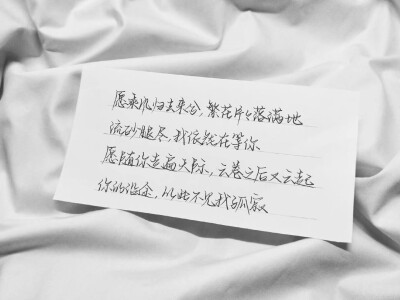 愿乘风归去来兮,繁花片片落满地
流砂飞尽,我依然在等你
愿随你走遍天际,云卷之后又云起
你的征途,从此不见我孤寂